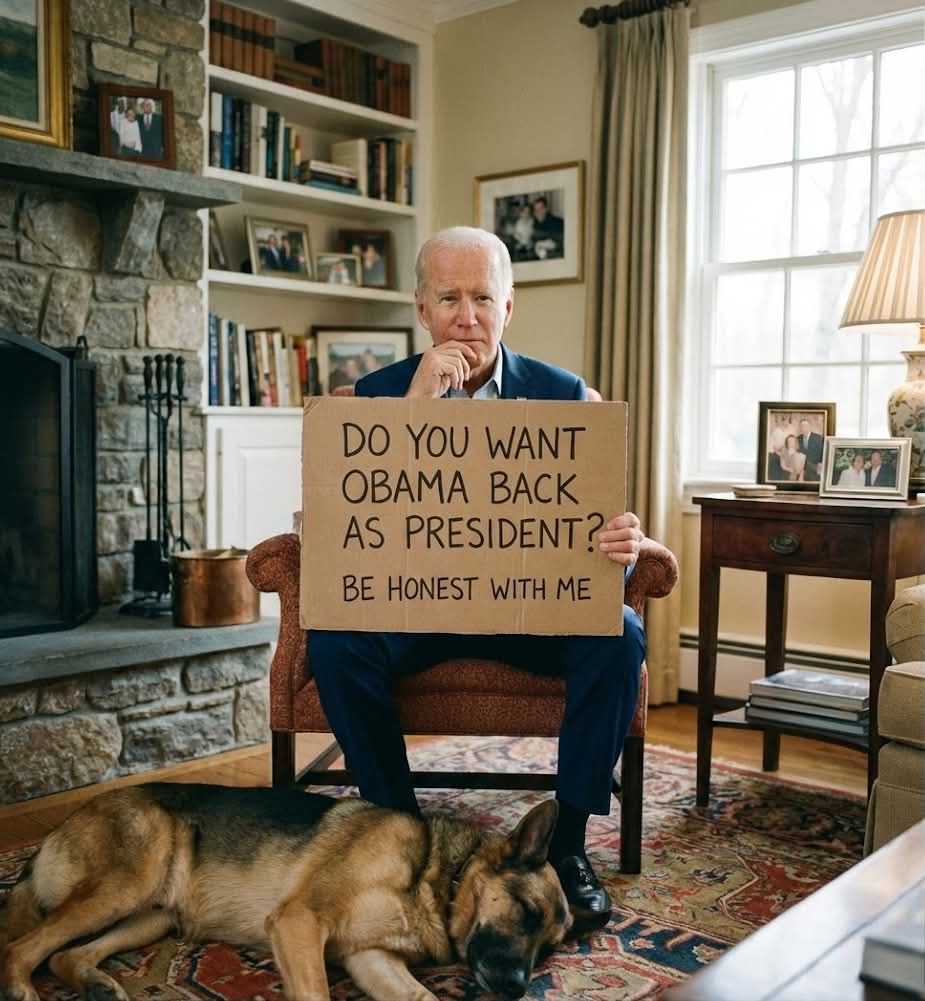 DO YOU WANT
OBAMA BACK
AS PRESIDENT?
BE HONEST WITH ME